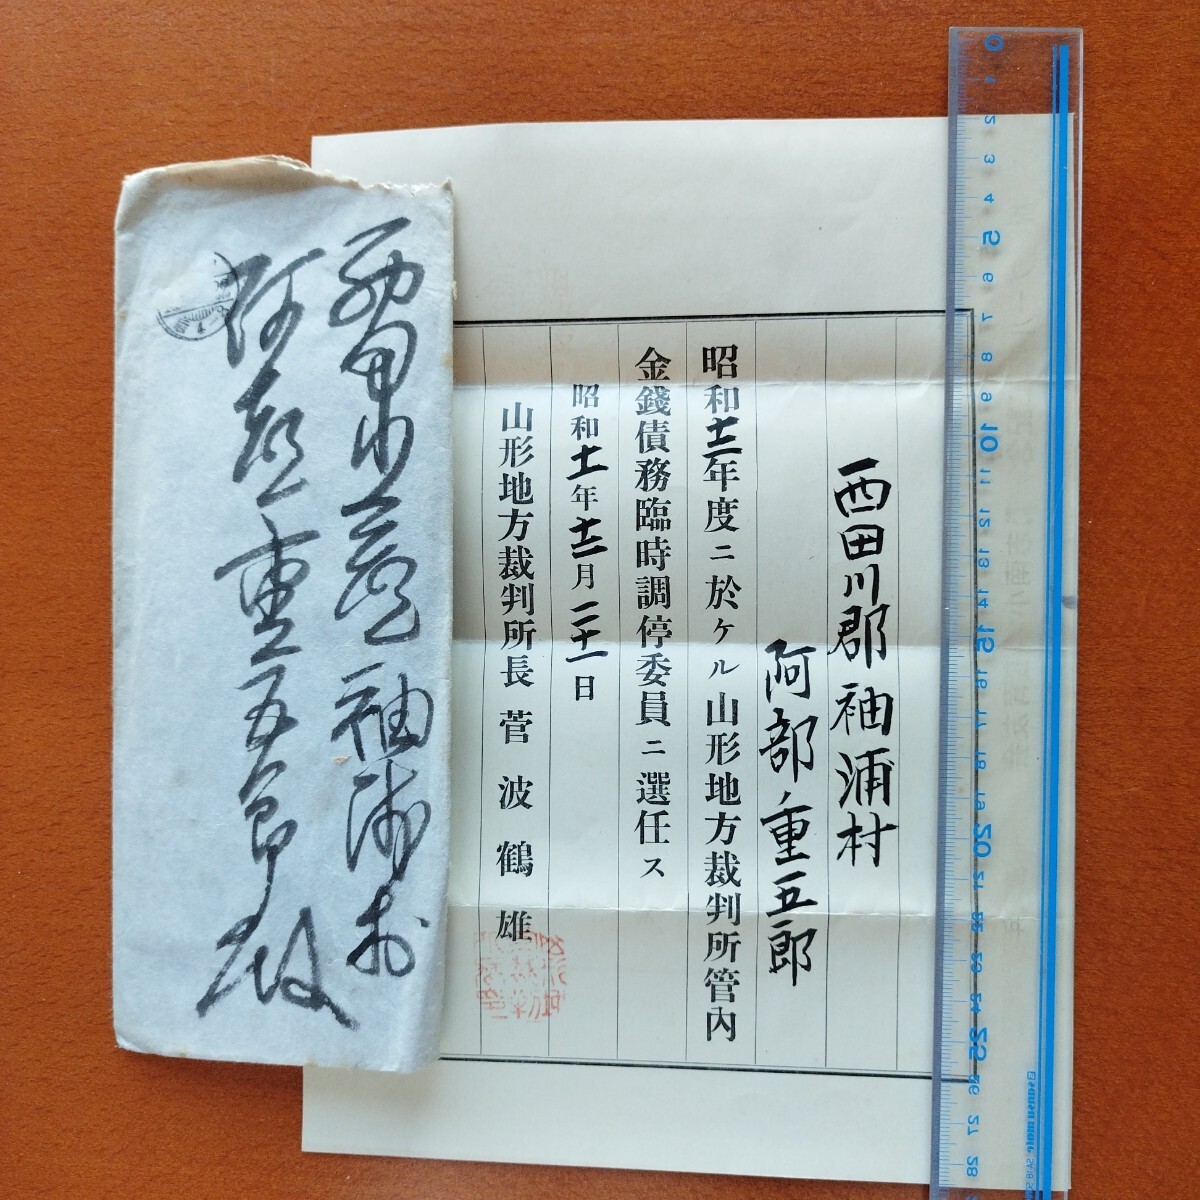 西田川郡袖浦村
阿部重五郎
昭和十二年度ニ於ケル山形地方裁判所管内
金錢債務臨時調停委員ニ選任ス
昭和十一年十二月二十一日
山形地方裁判所長 菅波鶴雄
袖浦村
阿部重五郎殿
0 1 2 3 4 5 6 7 8 9 10 11 12 13 14 15 16 17 18 19 20 21 22 23 24 25 26 27 28